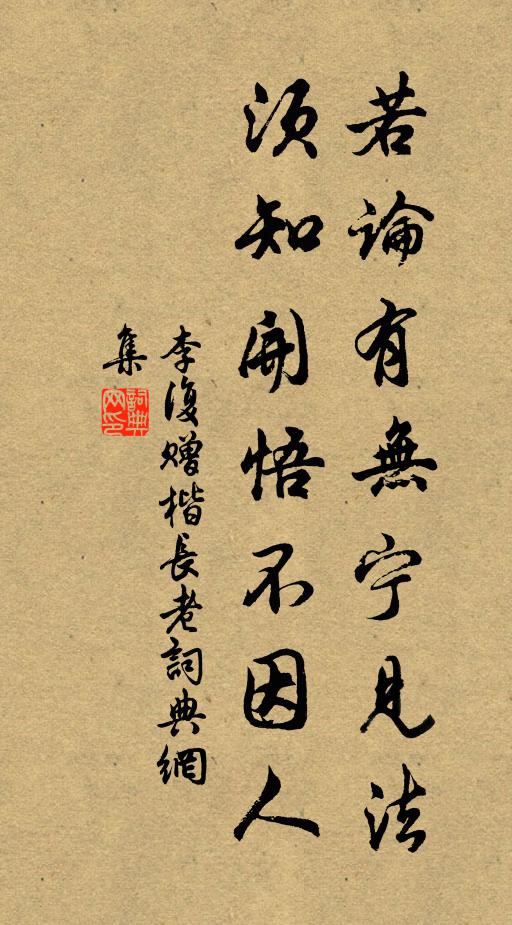 若論有無宁見法
須知開悟不因人
李復贈楷長老詞典網
集
詞典网印